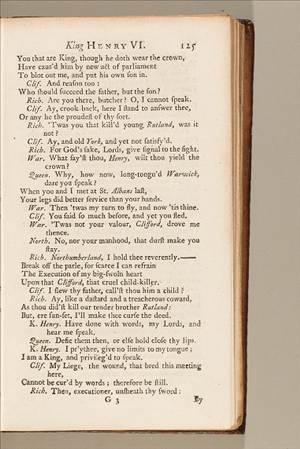 King HENRY VI. 125
You that are King, though he doth wear the crown,
Have cauſ'd him by new act of parliament
To blot out me, and put his own ſon in.
Clif. And reaſon too:
Who ſhould ſucceed the father, but the ſon?
Rich. Are you there, butcher? O, I cannot ſpeak.
Clif. Ay, crook-back, here I ſtand to anſwer thee,
Or any he the proudeſt of thy ſort.
Rich. 'Twas you that kill'd young Rutland, was it
not?
Clif. Ay, and old York, and yet not ſatisfy'd.
Rich. For God's ſake, Lords, give ſignal to the fight.
War. What ſay'ſt thou, Henry, wilt thou yield the
crown?
Queen. Why, how now, long-tongu'd Warwick,
dare you ſpeak?
When you and I met at St. Albans laſt,
Your legs did better ſervice than your hands.
War. Then 'twas my turn to fly, and now 'tis thine.
Clif. You ſaid ſo much before, and yet you fled.
War. 'Twas not your valour, Clifford, drove me
thence.
North. No, nor your manhood, that durſt make you
ſtay.
Rich. Northumberland, I hold thee reverently.——
Break off the parle, for ſcarce I can refrain
The Execution of my big-ſwoln heart
Upon that Clifford, that cruel child-killer.
Clif. I ſlew thy father, call'ſt thou him a child?
Rich. Ay, like a daſtard and a treacherous coward,
As thou did'ſt kill our tender brother Rutland:
But, ere ſun-ſet, I'll make thee curſe the deed.
K. Henry. Have done with words, my Lords, and
hear me ſpeak.
Queen. Defie them then, or elſe hold cloſe thy lips.
K. Henry. I pr'ythee, give no limits to my tongue;
I am a King, and privileg'd to ſpeak.
Clif. My Liege, the wound, that bred this meeting
here,
Cannot be cur'd by words; therefore be ſtill.
Rich. Then, executioner, unſheath thy ſword:
G 3 By